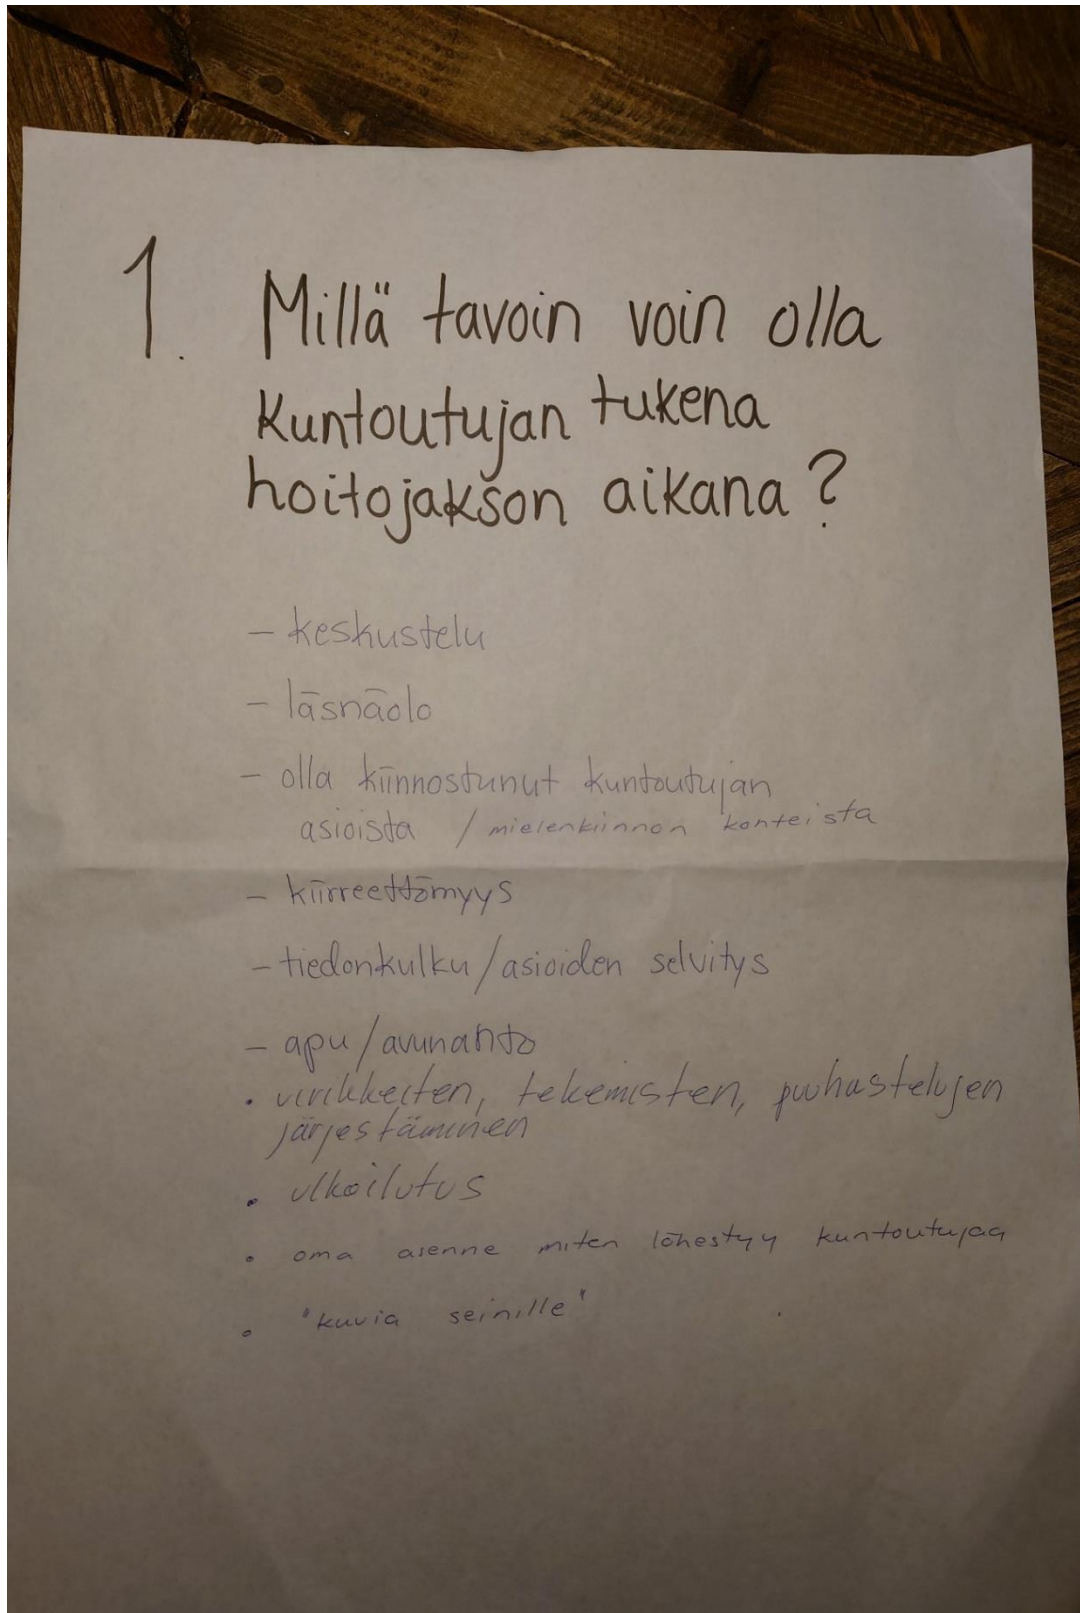 1. Millä tavoin voin olla
kuntoutujan tukena
hoitojakson aikana?
- keskustelu
- läsnäolo
- olla kiinnostunut kuntoutujan
asioista / mielenkiinnon konteista
- kiirreettömyys
- tiedonkulku/asioiden selvitys
- apu/avunanto
• virikkeiten, tekemisten, puuhastelujen
järjestäminen
• ulkoilutus
• oma asenne miten lähestyy kuntoutujaa
• "kuvia seinille"